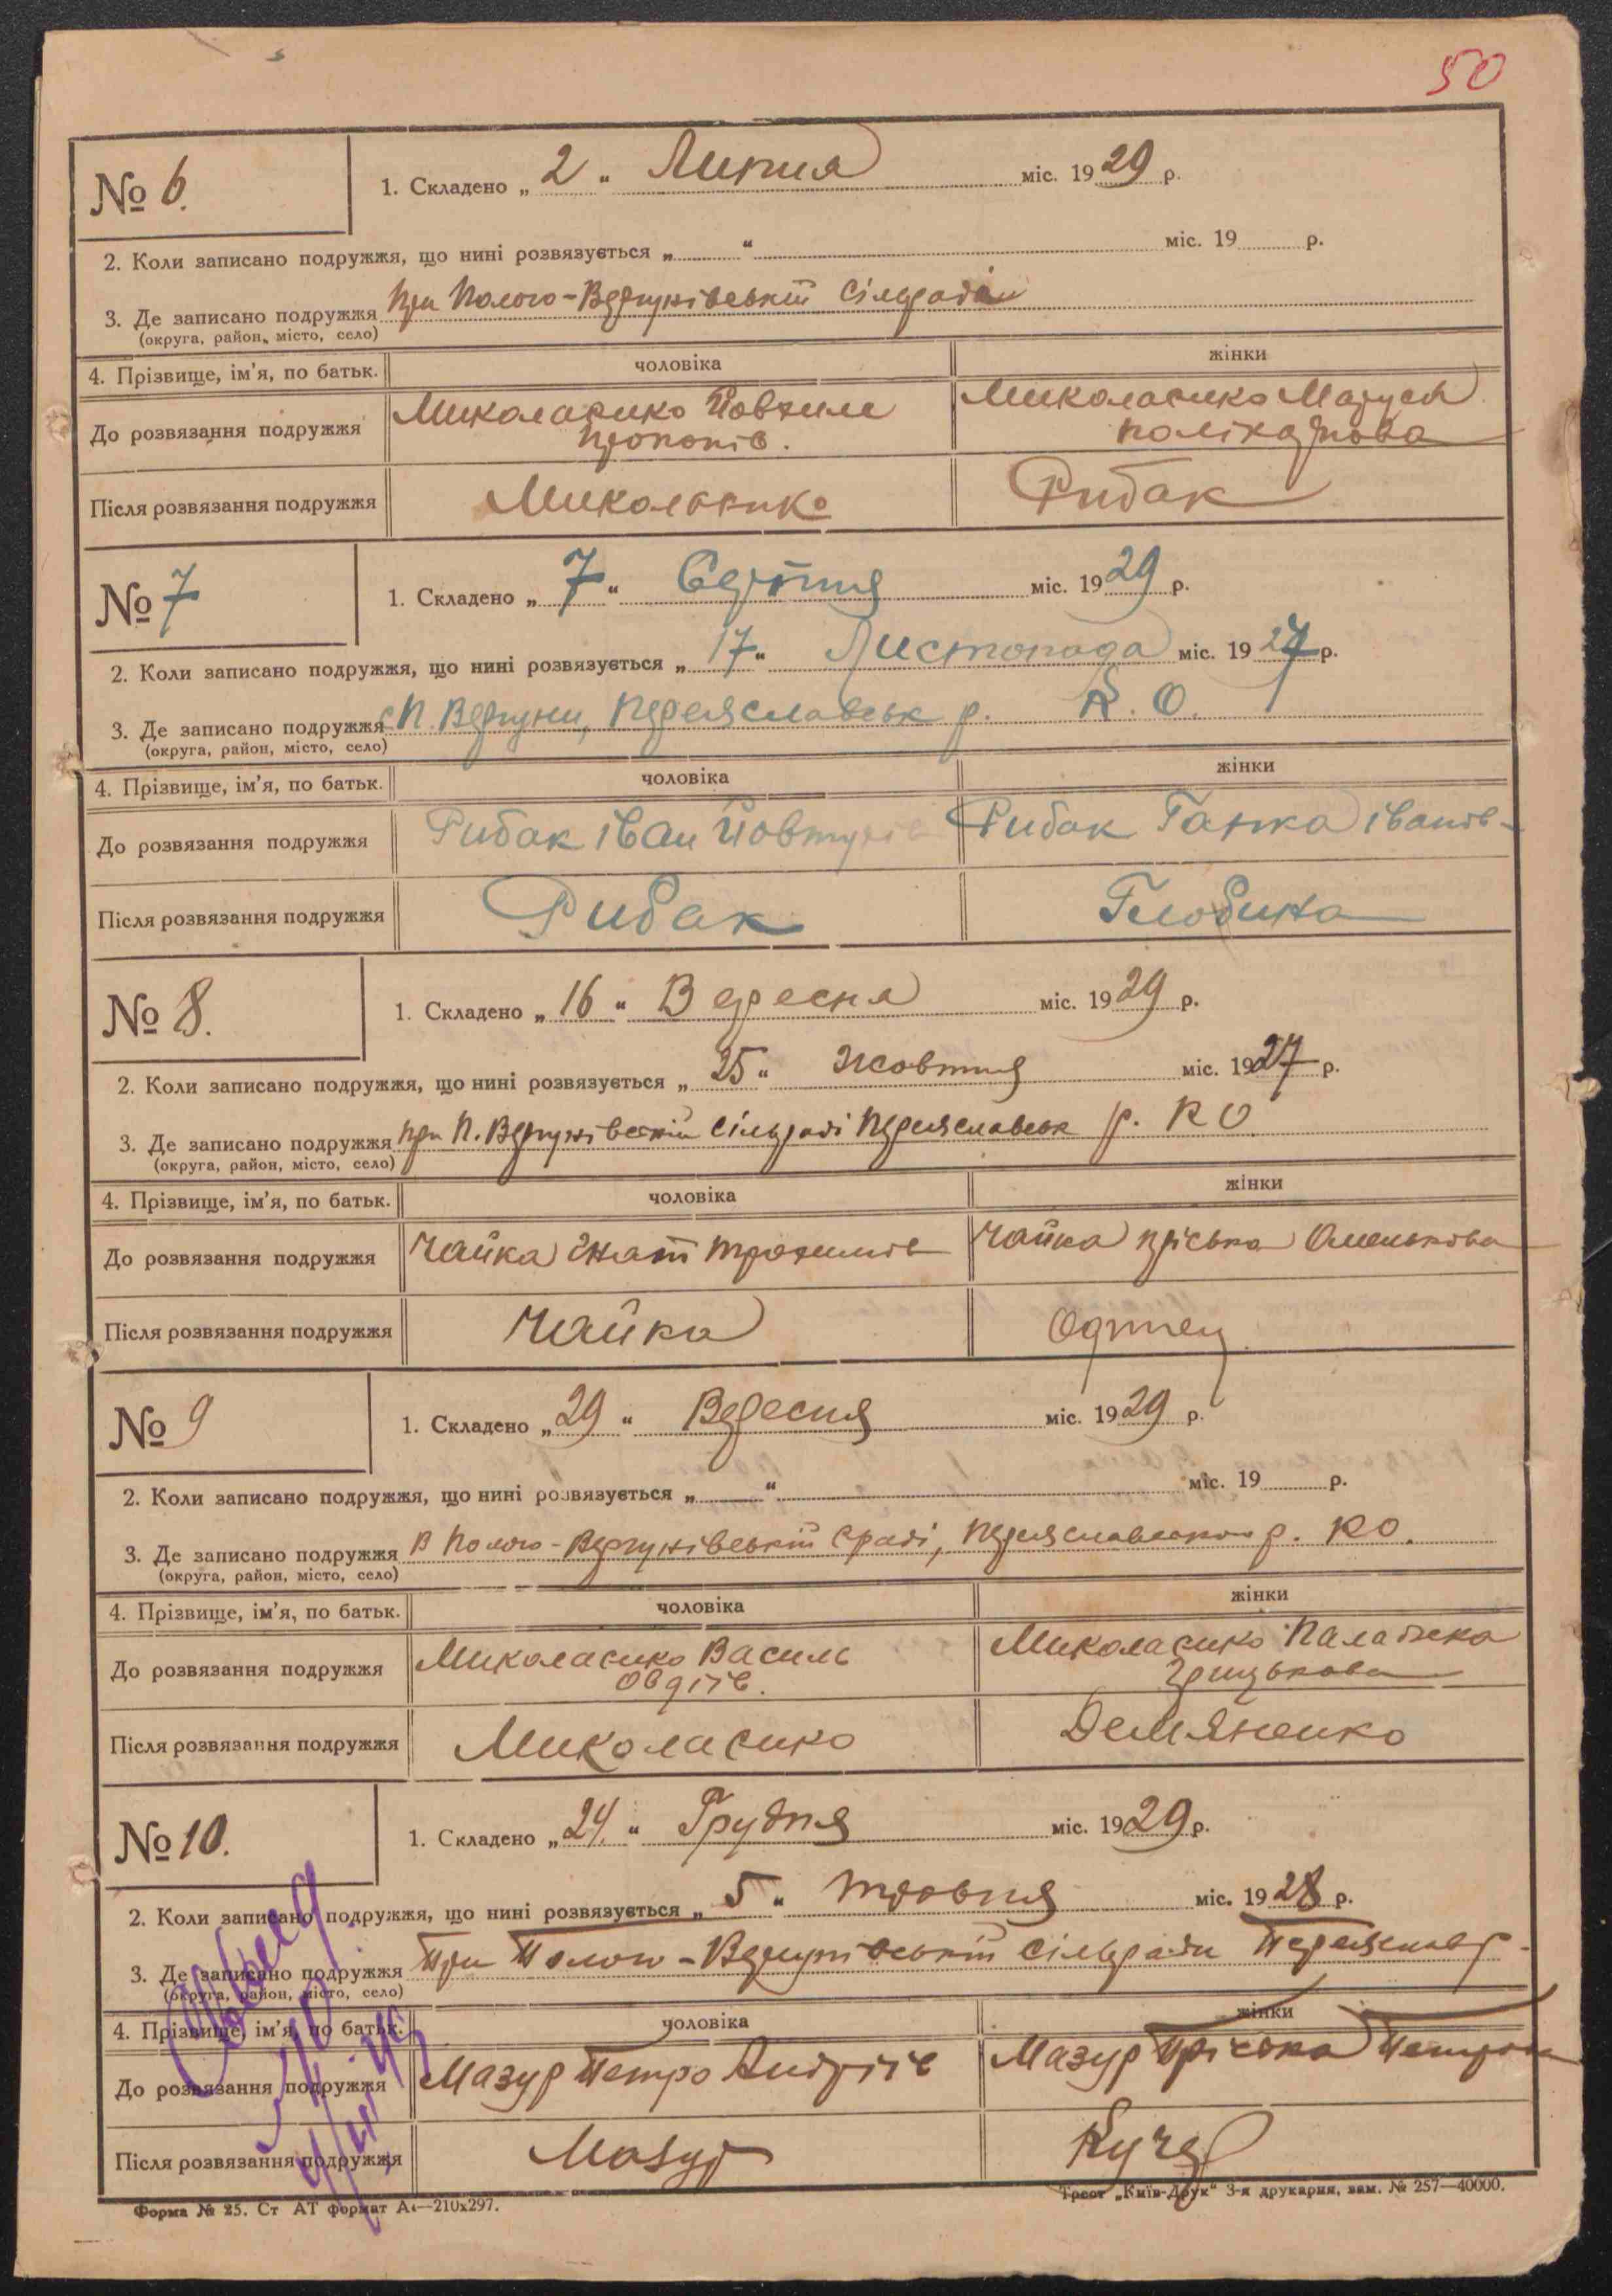 50
№ 6.
1. Складено „ 2 “ Липня міс. 1929 р.
2. Коли записано подружжя, що нині розвязується „ “ міс. 19 р.
3. Де записано подружжя При Полого-Вергунівській Сільраді
(округа, район, місто, село)
4. Прізвище, ім'я, по батьк. чоловіка жінки
До розвязання подружжя Миколаєнко Йовхим Миколаєнко Маруся
Прокопів. Полікарпова
Після розвязання подружжя Миколаєнко Рибак
№ 7
1. Складено „ 7 “ Серпня міс. 1929 р.
2. Коли записано подружжя, що нині розвязується „ 17 “ Листопада міс. 1927 р.
3. Де записано подружжя с П. Вергуни, Переяславськ р. К. О.
(округа, район, місто, село)
4. Прізвище, ім'я, по батьк. чоловіка жінки
До розвязання подружжя Рибак Іван Рибак Ганка Іванів-
Після розвязання подружжя Рибак
№ 8.
1. Складено „ 16 “ Вересня міс. 1929 р.
2. Коли записано подружжя, що нині розвязується „ 25 “ Жовтня міс. 1927 р.
3. Де записано подружжя при П. Вергунівській Сільраді Переяславськ р. К О
(округа, район, місто, село)
4. Прізвище, ім'я, по батьк. чоловіка жінки
До розвязання подружжя Чайка Ігнат Трохимів Чайка Пріська Омелькова
Після розвязання подружжя Чайка
№ 9
1. Складено „ 29 “ Вересня міс. 1929 р.
2. Коли записано подружжя, що нині розвязується „ “ міс. 19 р.
3. Де записано подружжя В Полого-Вергунівській Сраді, Переяславського р. КО.
(округа, район, місто, село)
4. Прізвище, ім'я, по батьк. чоловіка жінки
До розвязання подружжя Миколаєнко Василь Миколаєнко Палажка
Овдіїв. Грицькова
Після розвязання подружжя Миколаєнко Демяненко
№ 10.
1. Складено „ 24. “ Грудня міс. 1929 р.
2. Коли записано подружжя, що нині розвязується „ 5 “ Травня міс. 1928 р.
3. Де записано подружжя При Полого-Вергунівській Сільради Переяслав р.
(округа, район, місто, село)
4. Прізвище, ім'я, по батьк. чоловіка жінки
До розвязання подружжя Мазур Петро Андріїв Мазур Пріська Петрова
Після розвязання подружжя Мазур Кучер
Форма № 25. Ст АТ формат А4—210х297.
Трест „Київ-Друк“ 3-я друкарня, зам. № 257—40000.